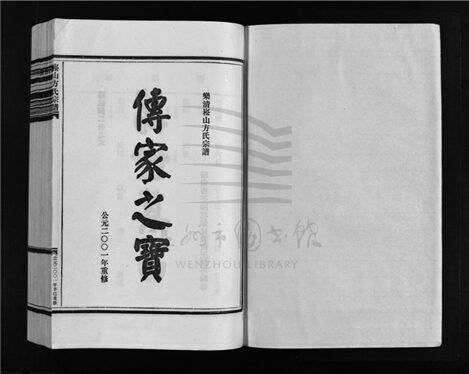 樂清崧山方氏宗譜
傳家之寶
公元二〇〇一年重修
崧山方氏宗譜
公元二〇〇一年重修
溫州市圖書館
WENZHOU LIBRARY